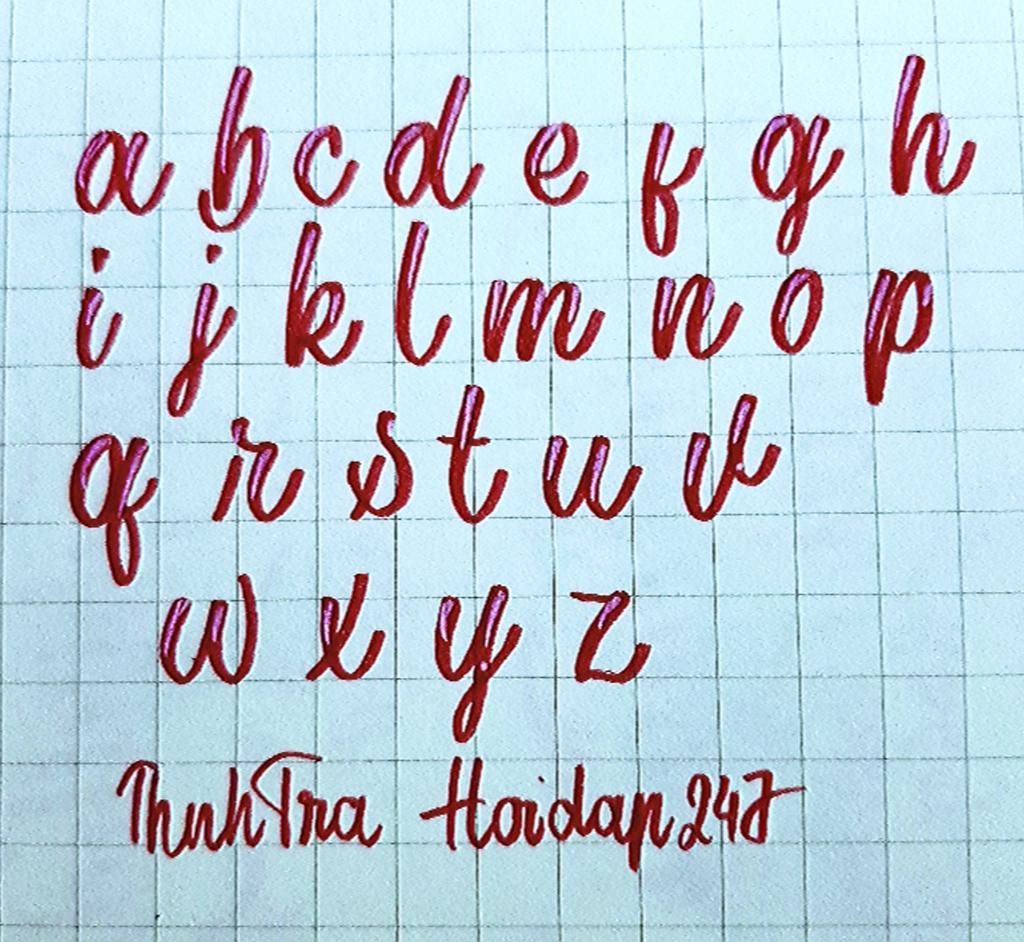 a b c d e f g h
i j k l m n o p
q r s t u v
w x y z
ThnhTra Hoidap247